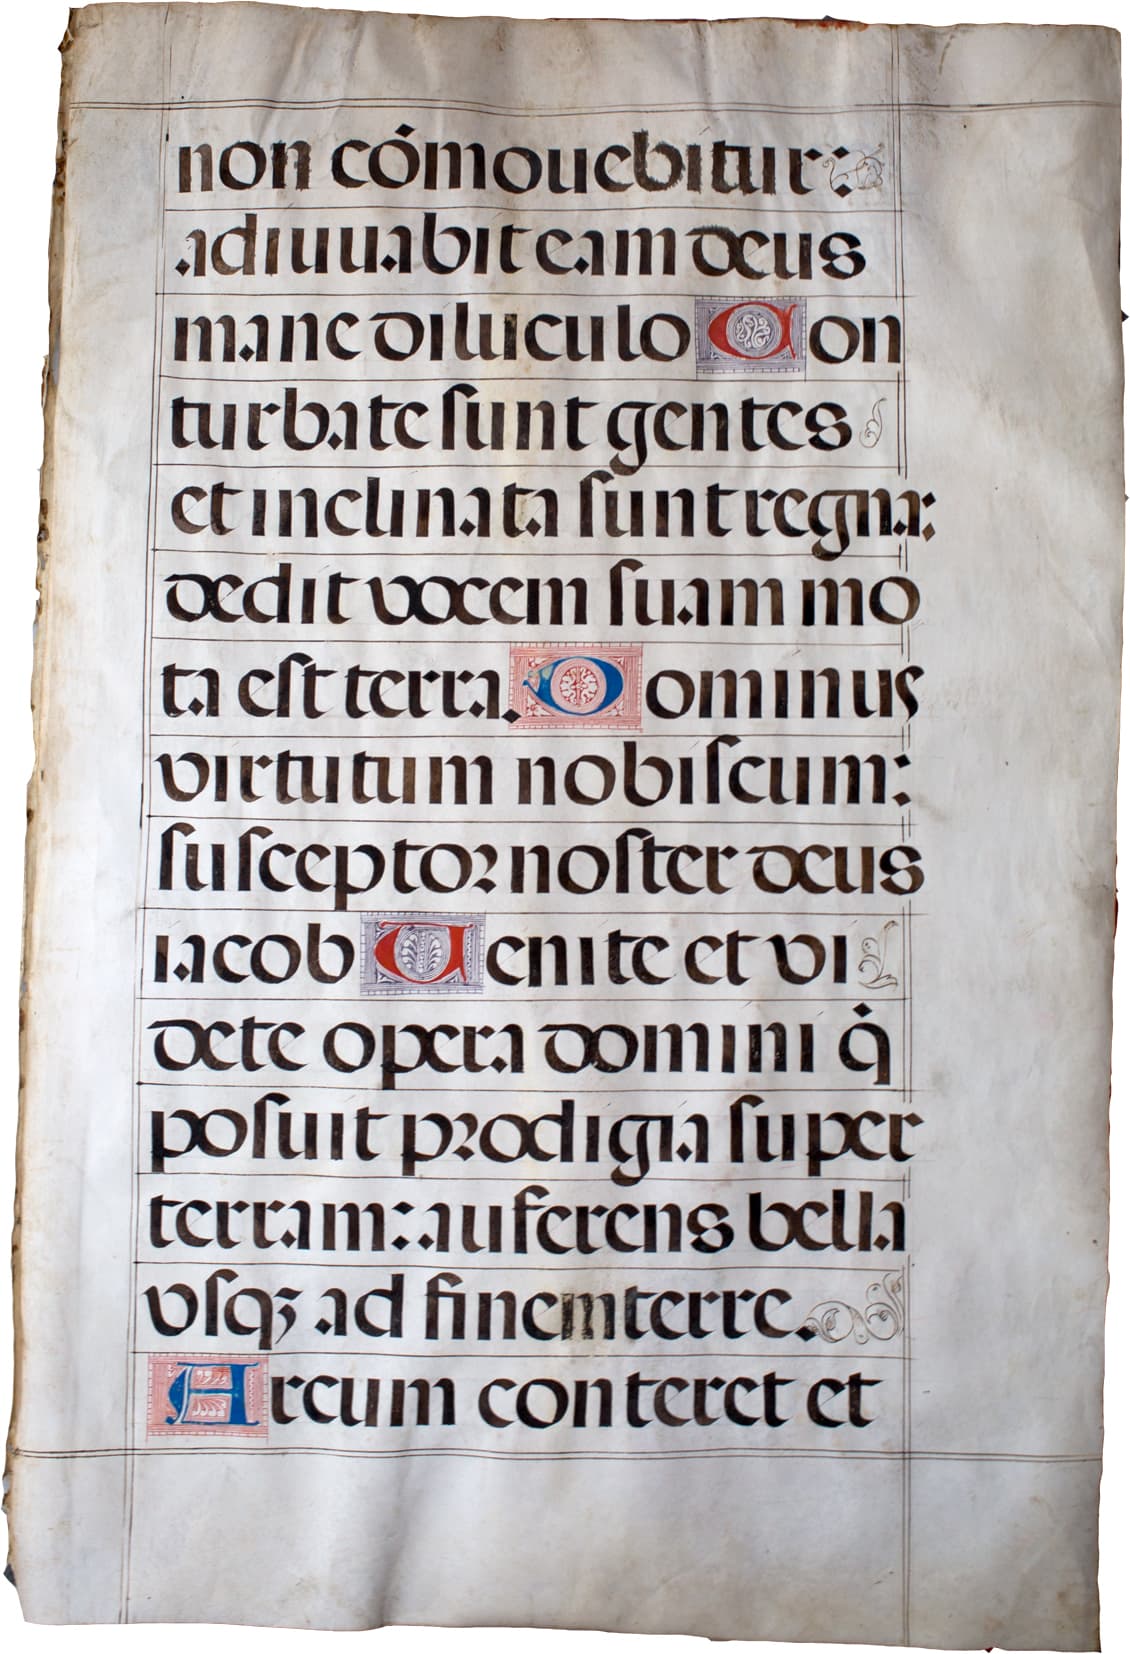 non cómouebitur:
adiuuabit eam deus
mane diluculo Con
turbate sunt gentes
et inclinata sunt regna:
dedit vocem suam mo
ta est terra. Dominus
virtutum nobiscum:
susceptor noster deus
iacob Uenite et vi
dete opera domini q̇̃
posuit prodigia super
terram: auferens bella
vsqꝫ ad finem terre.
Arcum conteret et